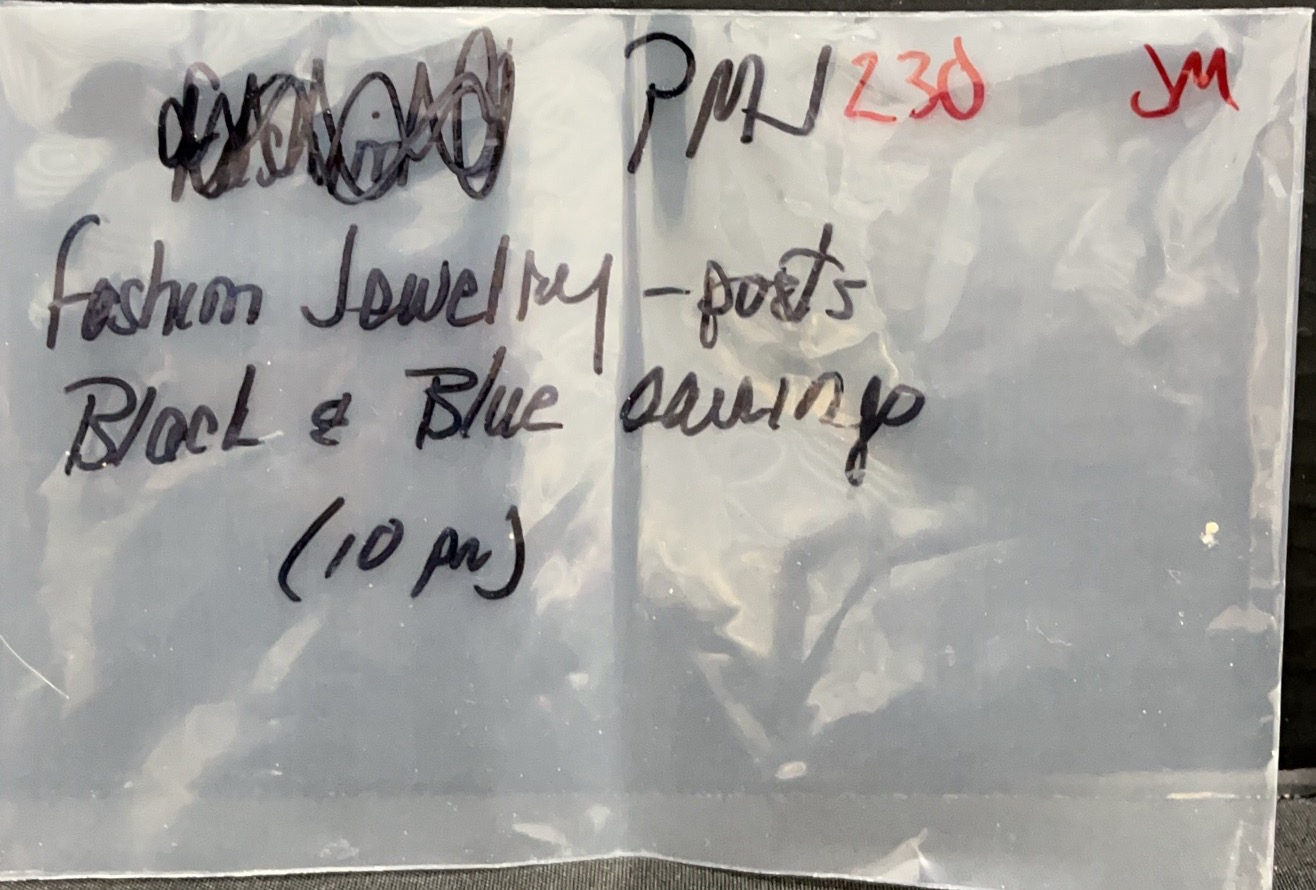 PMJ 230 JM
Fashion Jewelry - posts
Black & Blue earrings
(10 pr)